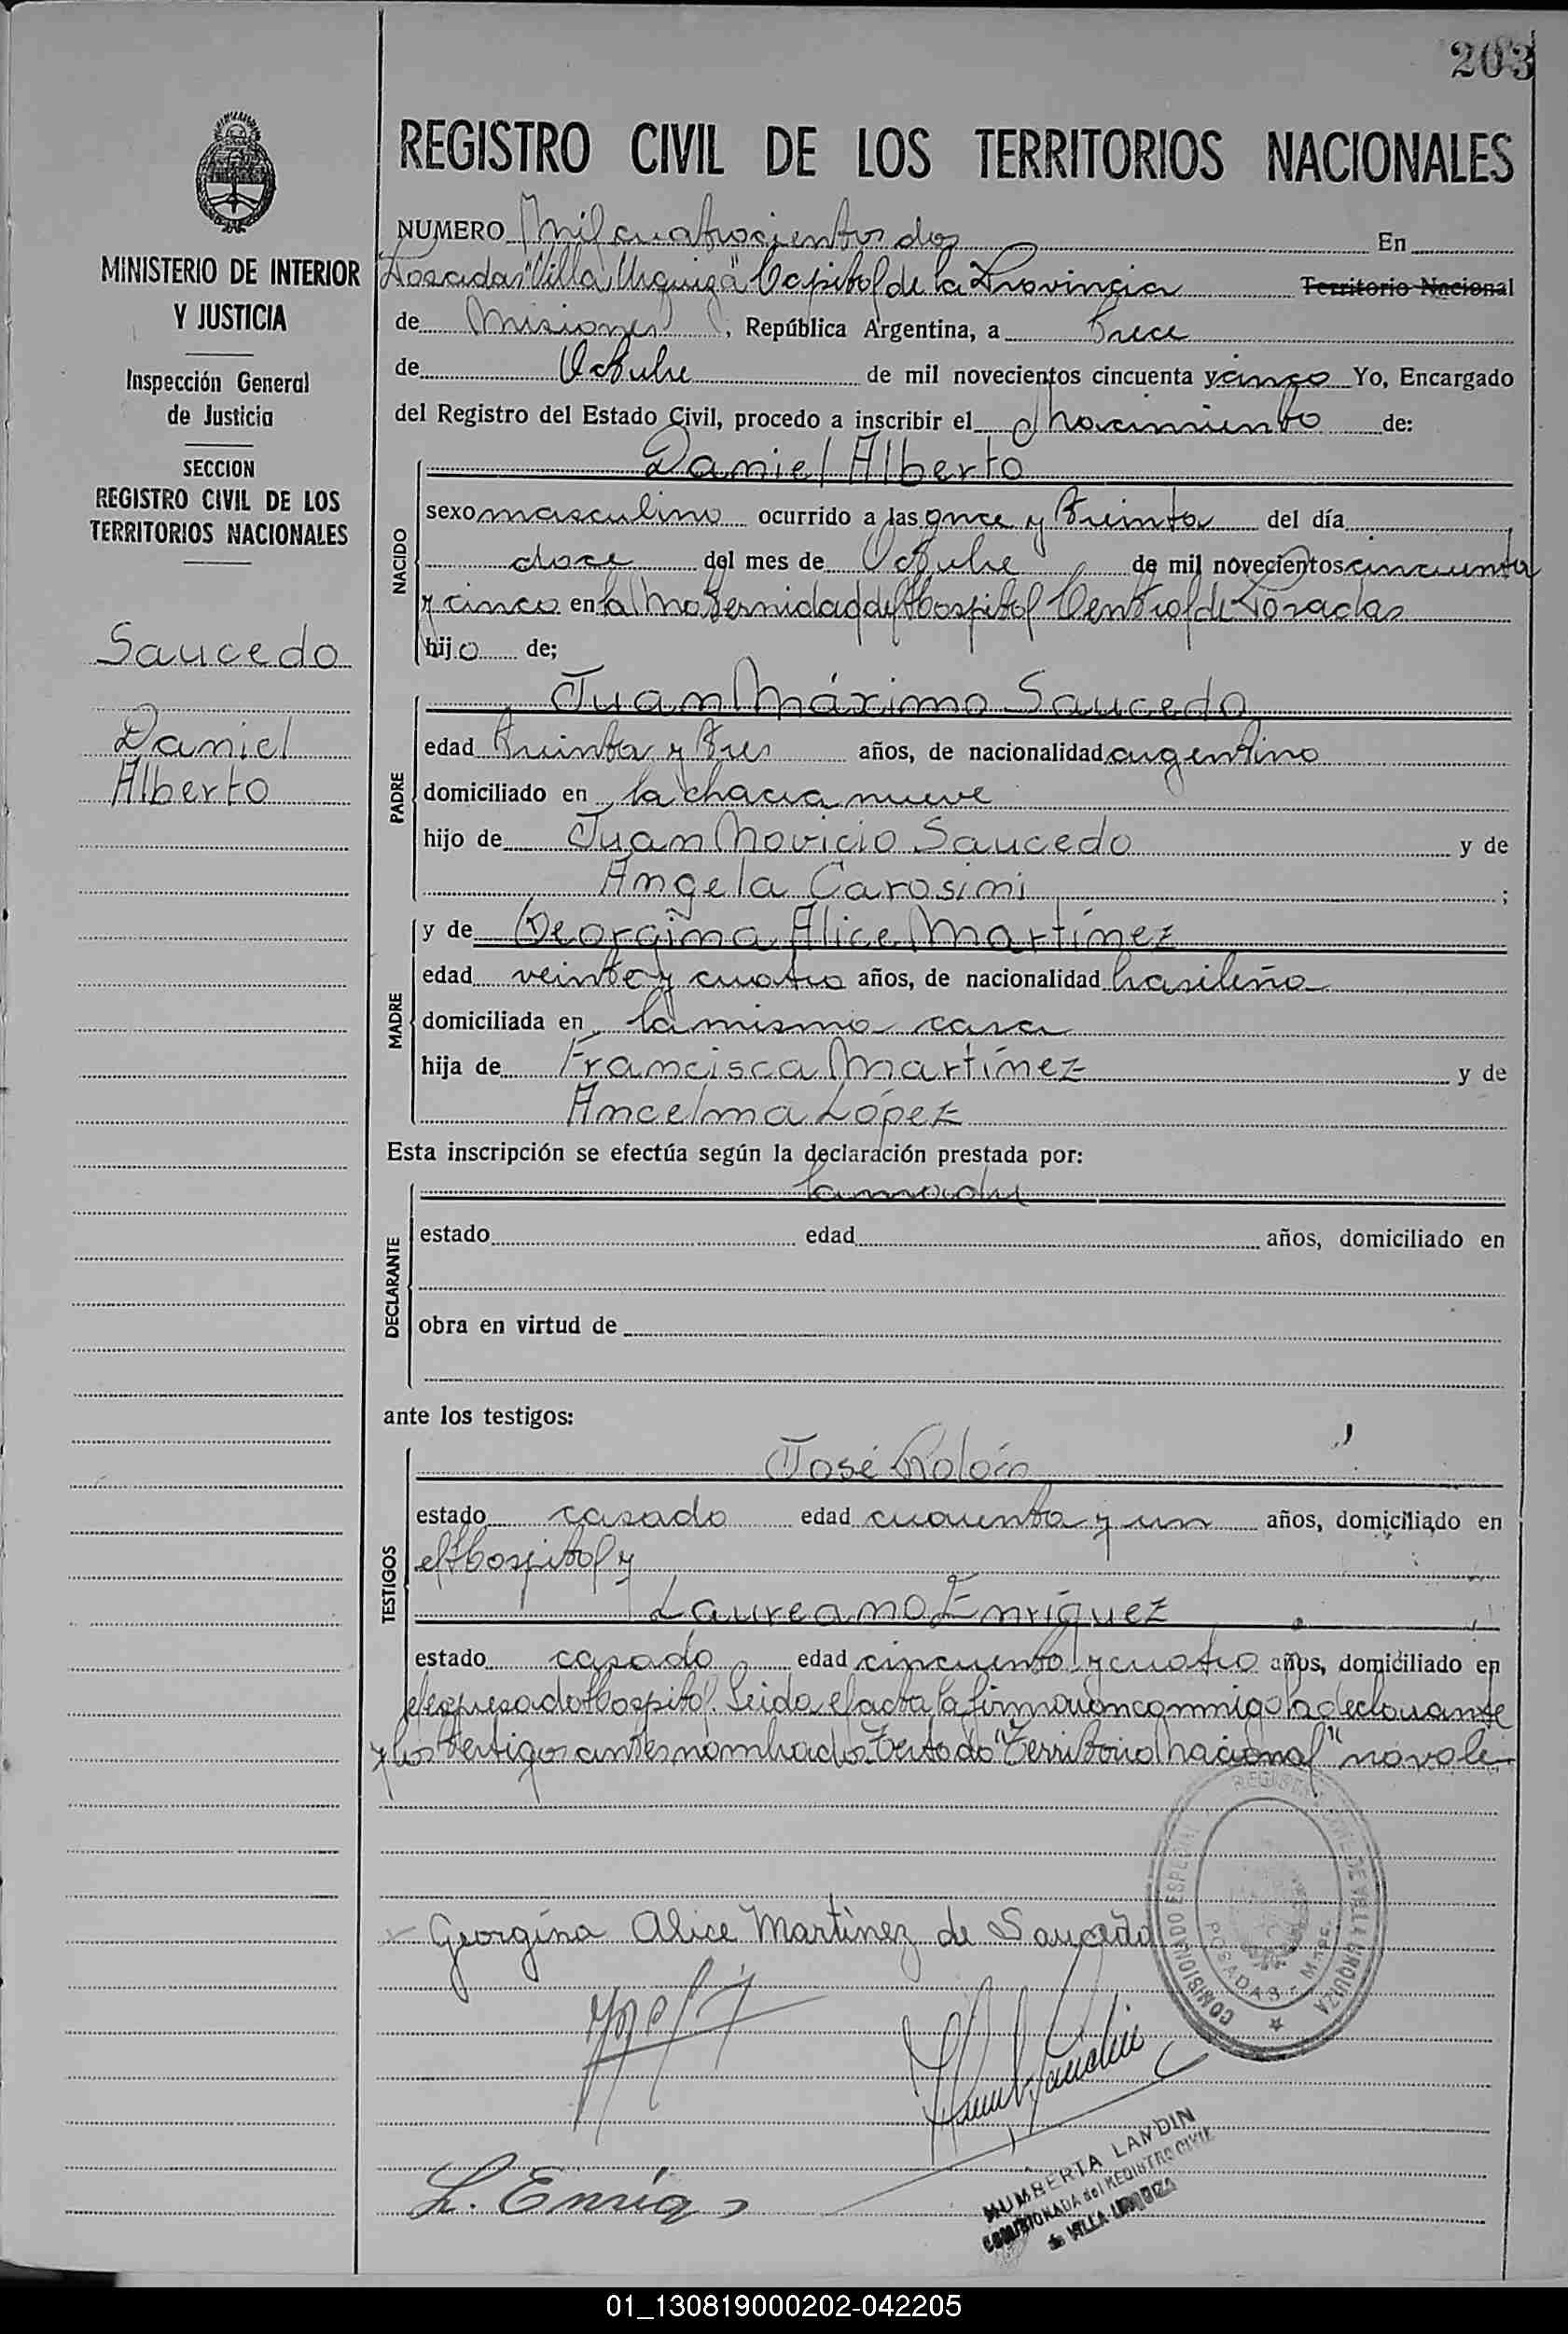 203
REGISTRO CIVIL DE LOS TERRITORIOS NACIONALES
MINISTERIO DE INTERIOR
Y JUSTICIA
Inspección General
de Justicia
SECCION
REGISTRO CIVIL DE LOS
TERRITORIOS NACIONALES
Saucedo
Daniel
Alberto
NUMERO Mil cuatrocientos dos En
Posadas "Villa Urquiza" Capital de la Provincia Territorio Nacional
de Misiones, República Argentina, a trece
de Octubre de mil novecientos cincuenta y cinco Yo, Encargado
del Registro del Estado Civil, procedo a inscribir el nacimiento de:
Daniel Alberto
NACIDO
sexo masculino ocurrido a las once y treinta del día
doce del mes de Octubre de mil novecientos cincuenta
y cinco en la Maternidad del Hospital Central de Posadas
hijo de;
Juan Máximo Saucedo
PADRE
edad treinta y tres años, de nacionalidad argentino
domiciliado en la chacra nueve
hijo de Juan Novicio Saucedo y de
Angela Carosini ;
MADRE
y de Georgina Alice Martínez
edad veinte y cuatro años, de nacionalidad brasileña
domiciliada en la misma casa
hija de Francisca Martínez y de
Ancelma López
Esta inscripción se efectúa según la declaración prestada por:
la madre
DECLARANTE
estado edad años, domiciliado en
obra en virtud de
ante los testigos:
José Rolón
TESTIGOS
estado casado edad cuarenta y un años, domiciliado en
el Hospital y
Laureano Enríquez
estado casado edad cincuenta y cuatro años, domiciliado en
el expresado Hospital. Leida el acta la firmaron conmigo la declarante
y los testigos antes nombrados. Testado "Territorio Nacional" no vale
REGISTRO CIVIL DE VILLA URQUIZA
COMISIONADO ESPECIAL
POSADAS - Mnes.
Georgina Alice Martinez de Saucedo
L. Enriq
HUMBERTA LANDIN
COMISIONADA del REGISTRO CIVIL
de VILLA URQUIZA
01_130819000202-042205